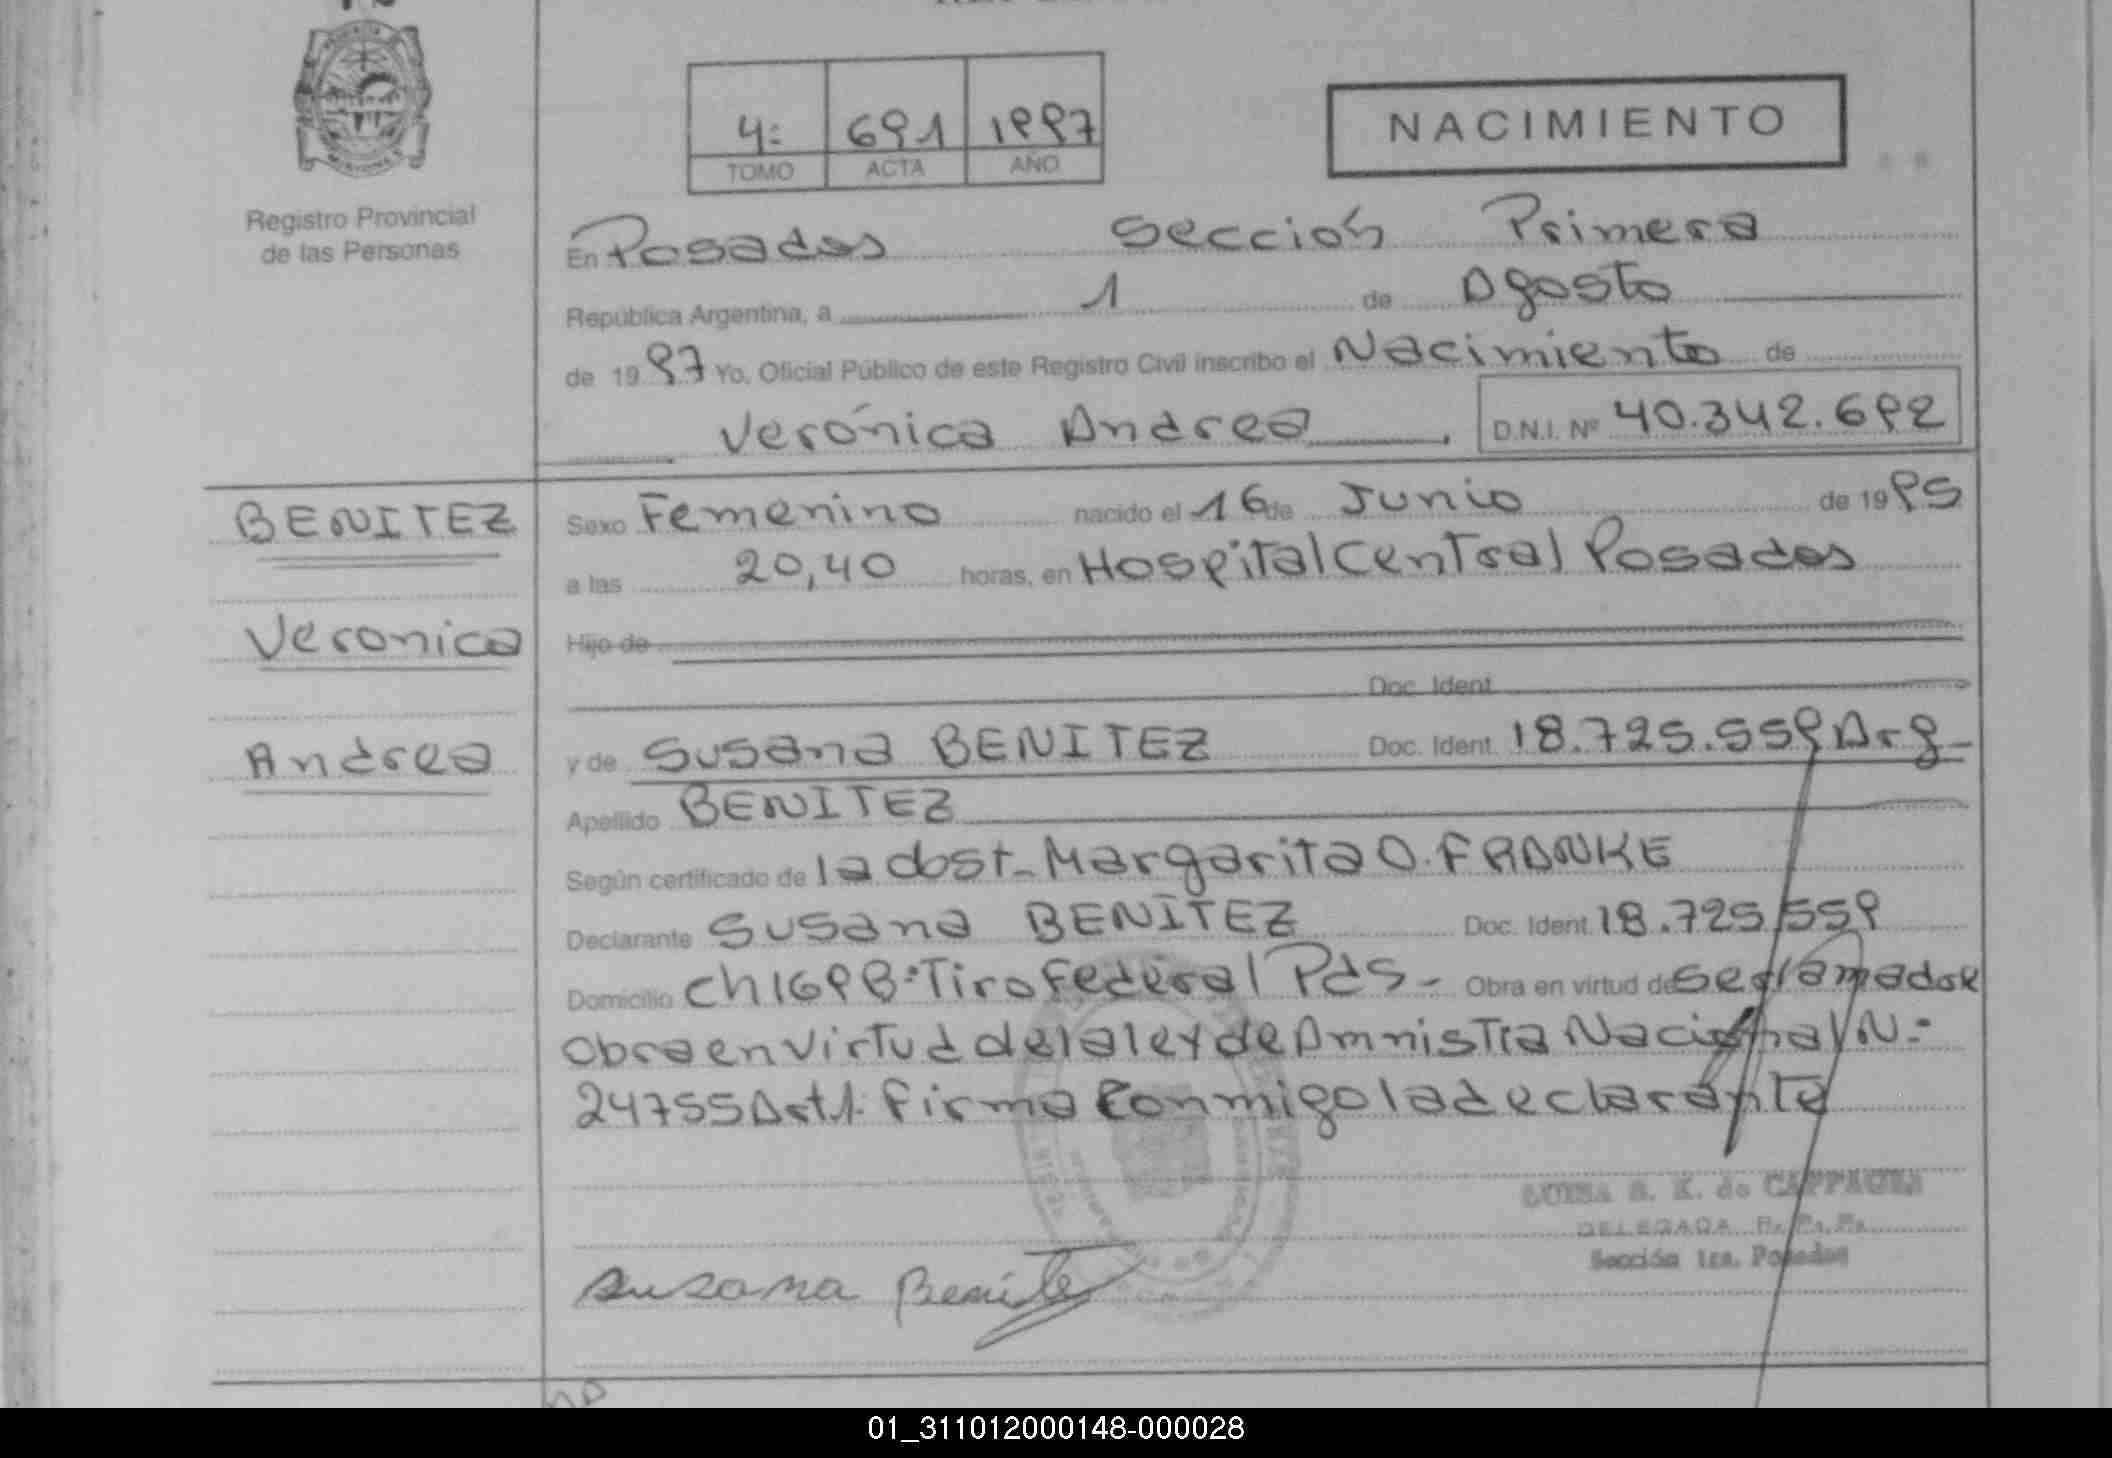 Registro Provincial
de las Personas
4: 691 1997
TOMO ACTA AÑO
NACIMIENTO
En Posadas Sección Primera
República Argentina, a 1 de Agosto
de 1997 Yo, Oficial Público de este Registro Civil inscribo el Nacimiento de
Verónica Andrea
D.N.I. Nº 40.342.692
BENITEZ
Veronica
Andrea
Sexo Femenino nacido el 16 de Junio de 1995
a las 20,40 horas, en Hospital Central Posadas
Hijo de
Doc. Ident.
y de Susana BENITEZ Doc. Ident. 18.725.559 Arg
Apellido BENITEZ
Según certificado de la obst. Margarita O. FRANKE
Declarante Susana BENITEZ Doc. Ident. 18.725.559
Domicilio Ch 169 B: Tiro Federal Pdas - Obra en virtud de
Obra en virtud de la ley de Amnistia Nacional N:
24755 Art 1: firma conmigo la declarante
LUISA S. K. de
DELEGADA R. P. P.
Sección 1ra. Posadas
Susana Benitez
01_311012000148-000028